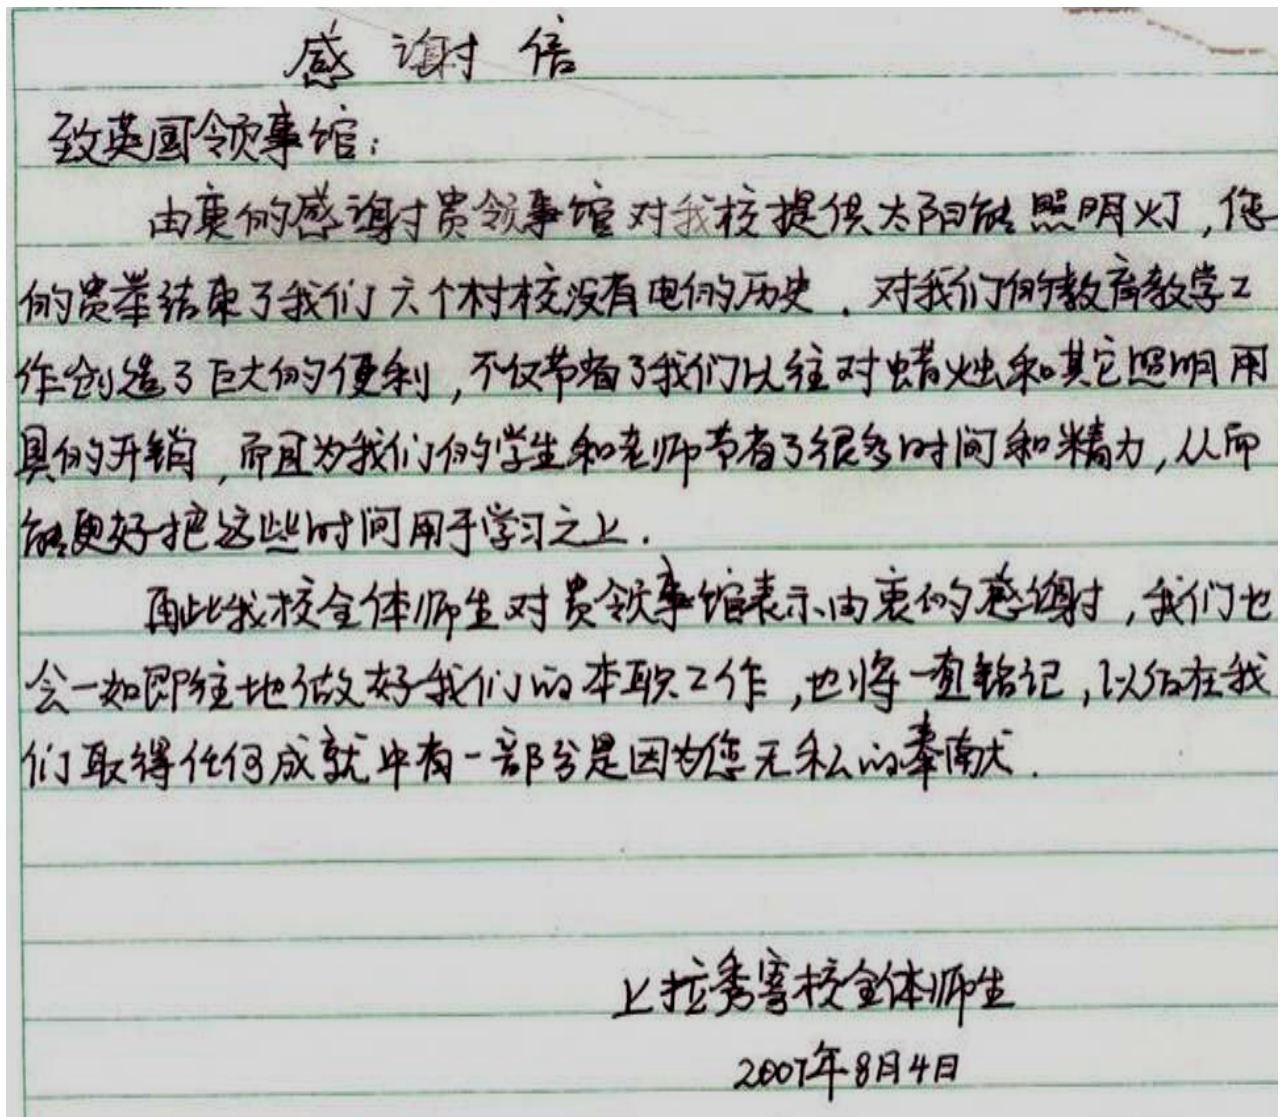 感谢信
致英国领事馆：
由衷的感谢贵领事馆对我校提供太阳能照明灯，您
的贵举结束了我们六个村校没有电的历史．对我们的教育教学工
作创造了巨大的便利，不仅节省了我们以往对蜡烛和其它照明用
具的开销，而且为我们的学生和老师节省了很多时间和精力，从而
能更好把这些时间用于学习之上．
再此我校全体师生对贵领事馆表示由衷的感谢，我们也
会一如即往地做好我们的本职工作，也将一直铭记，以后在我
们取得任何成就中有一部分是因为您无私的奉献．
上拉秀寄校全体师生
2007年8月4日